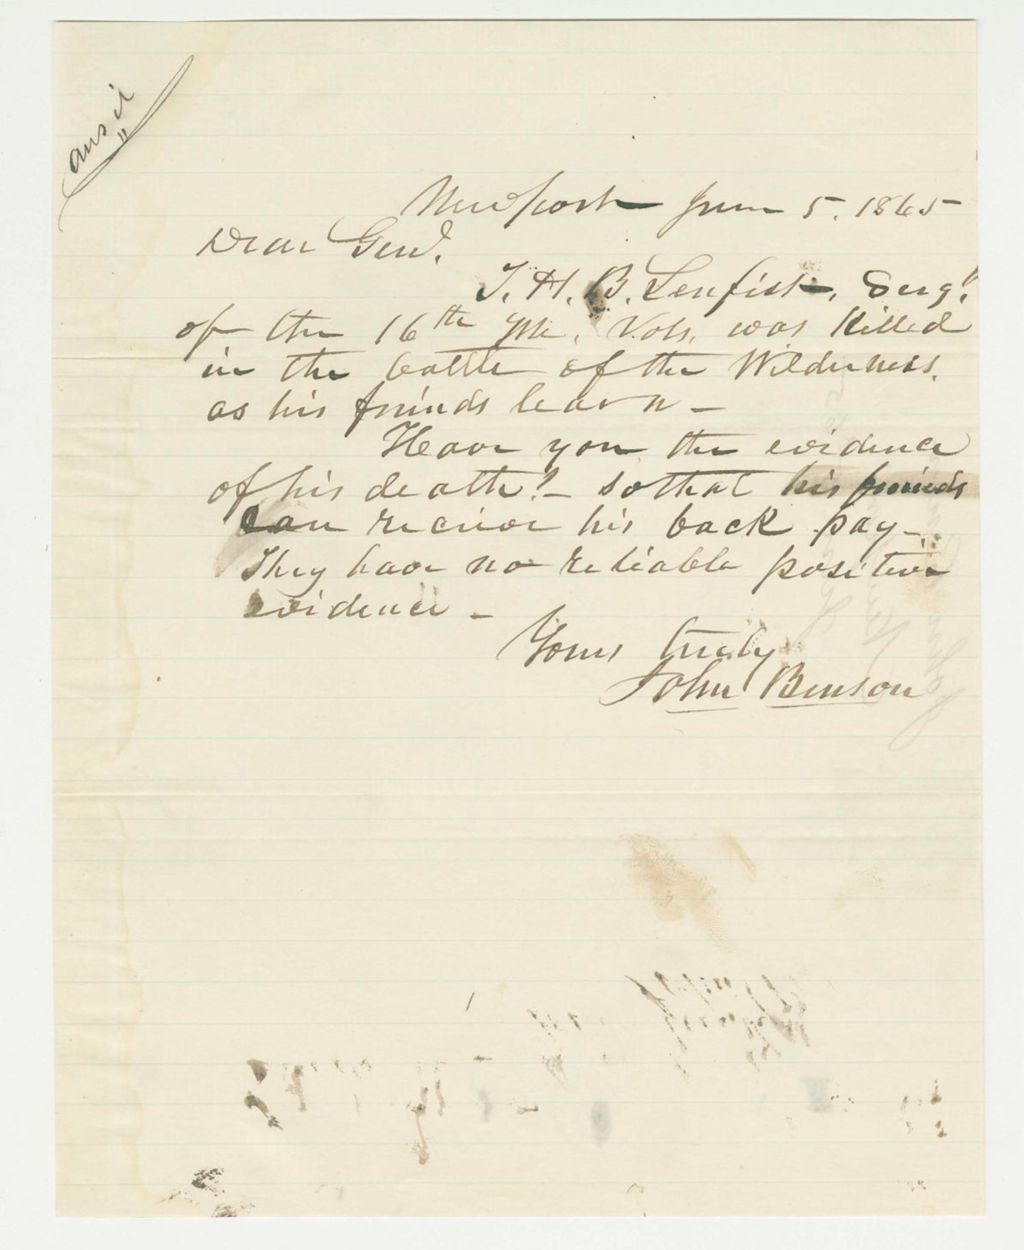 ans'd
Newport June 5. 1865
Dear Genl.
T. H. B. Lenfist, Sergt
of the 16th Me. Vols, was killed
in the battle of the Wilderness.
as his friends learn -
Have you the evidence
of his death? - so that his friends
can recieve his back pay -
They have no reliable positive
evidence -
Yours truly
John Benson